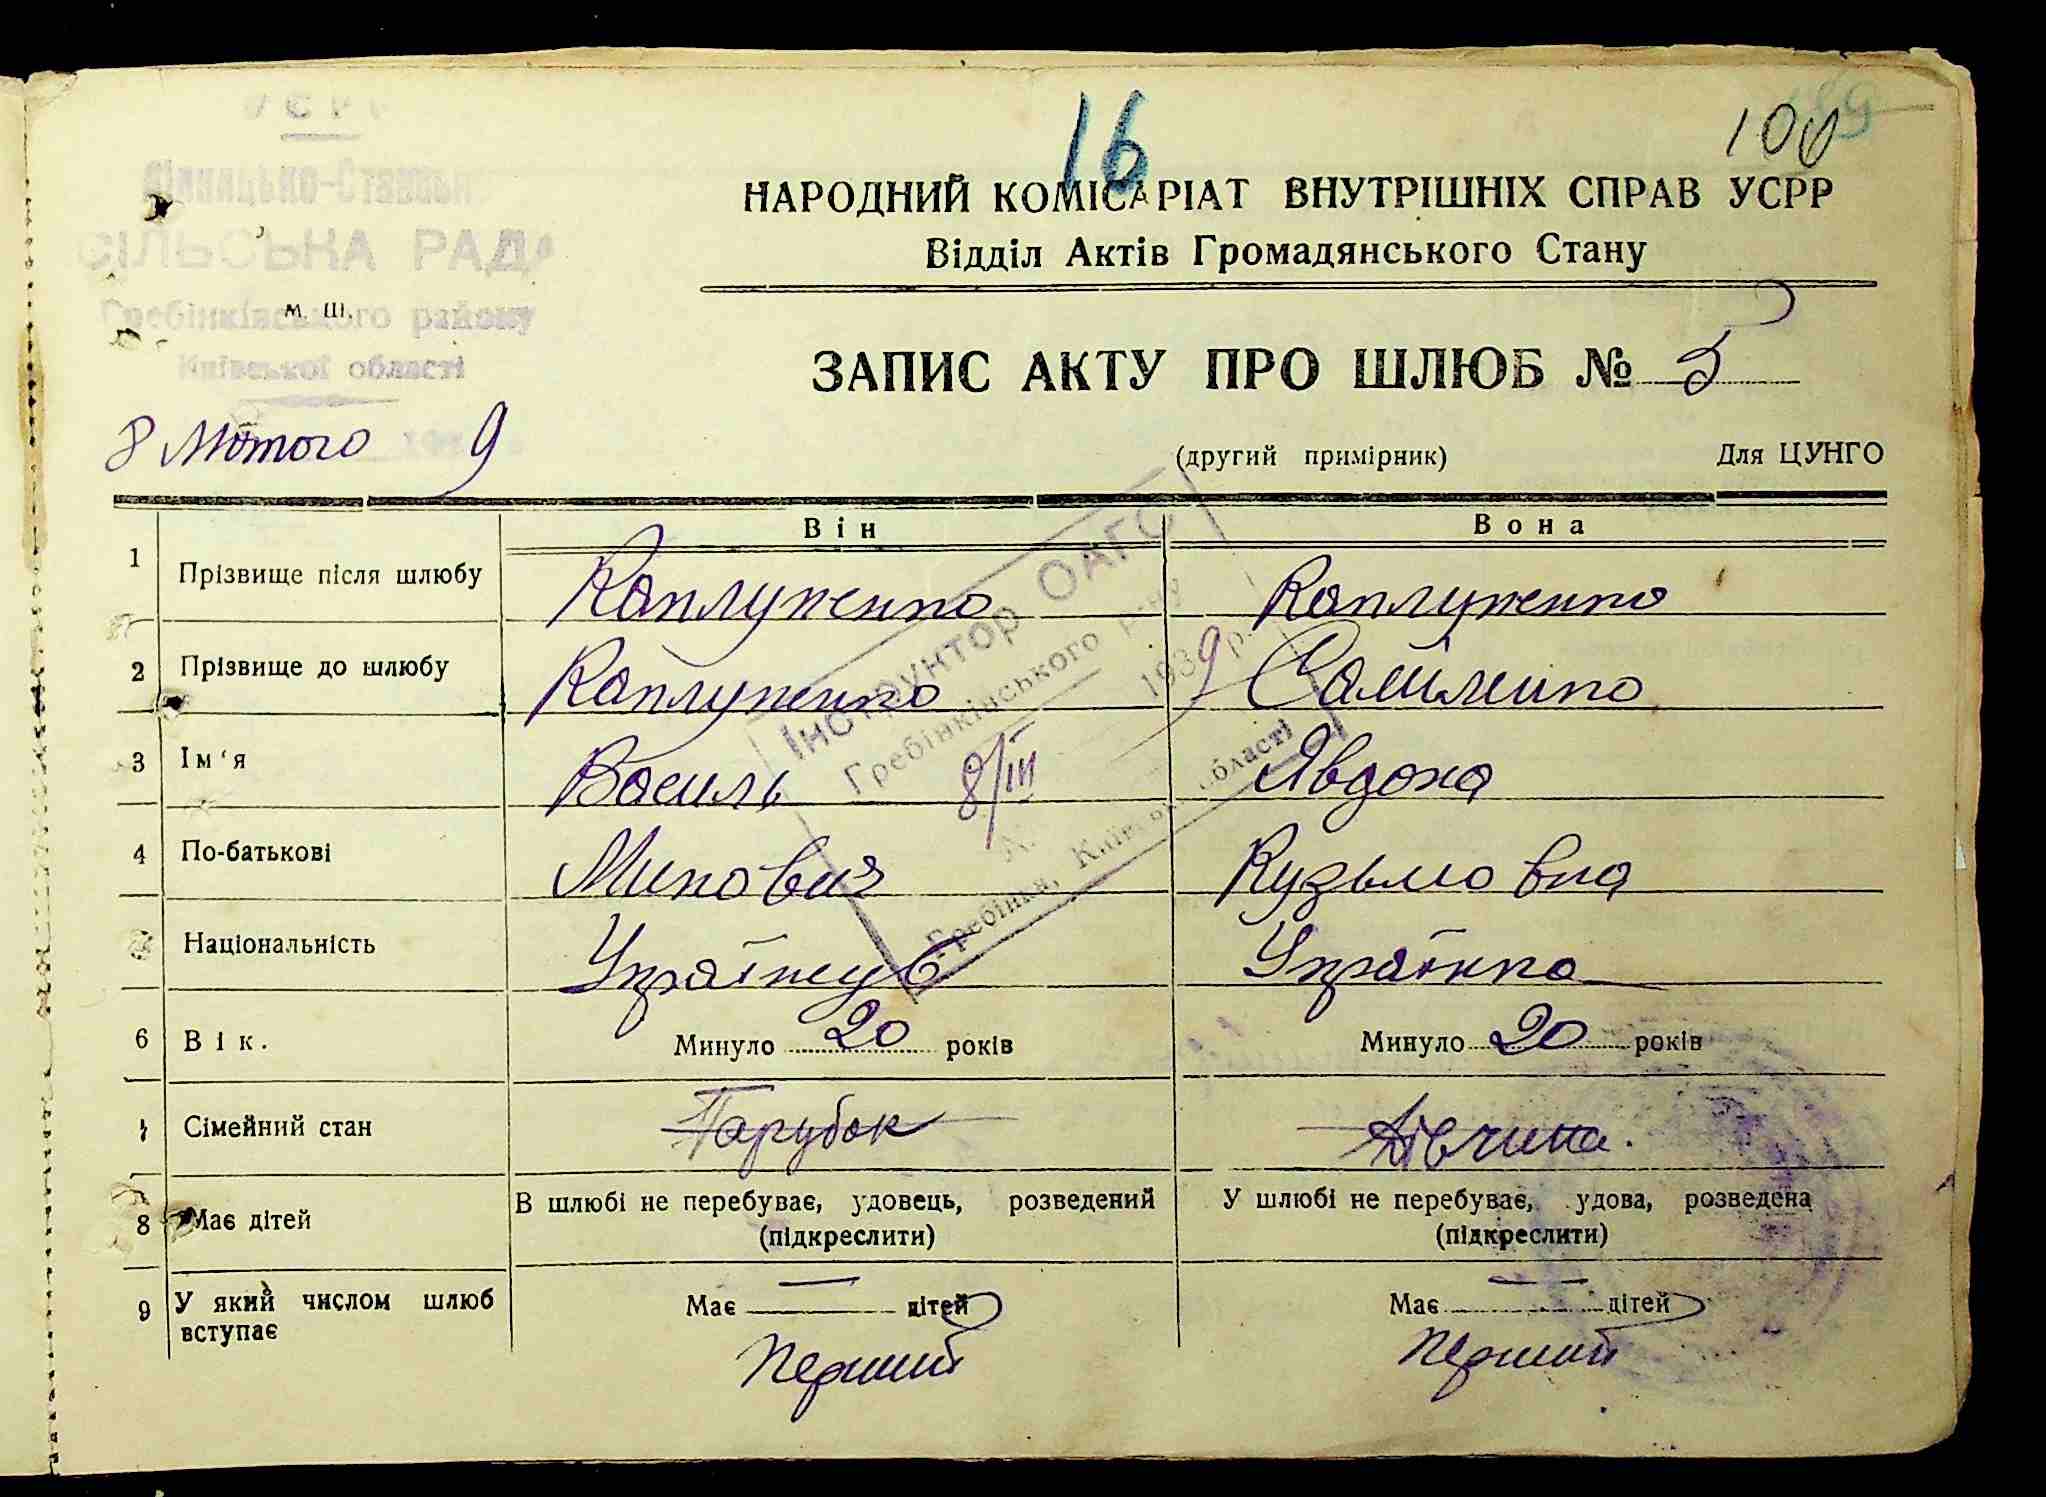 16
100
НАРОДНИЙ КОМІСАРІАТ ВНУТРІШНІХ СПРАВ УСРР
Відділ Актів Громадянського Стану
СІЛЬСЬКА РАДА
Гребінківського району
м. ш.
Київської області
ЗАПИС АКТУ ПРО ШЛЮБ № 5
8 Лютого 9
(другий примірник) Для ЦУНГО
Він Вона
1 Прізвище після шлюбу Каплуненко Каплуненко
2 Прізвище до шлюбу Каплуненко
3 Ім'я Василь Явдоха
4 По-батькові Кузьмовна
Національність Українка
6 Вік. Минуло 20 років Минуло 20 років
Сімейний стан Парубок Дівчина.
8 Має дітей В шлюбі не перебуває, удовець, розведений У шлюбі не перебуває, удова, розведена
(підкреслити) (підкреслити)
9 У який числом шлюб вступає Має — дітей Має — дітей
Перший Перший
Інструктор ОАГС
Гребінківського р-ну
8/III 1939 р.
Гребінка, Київської області